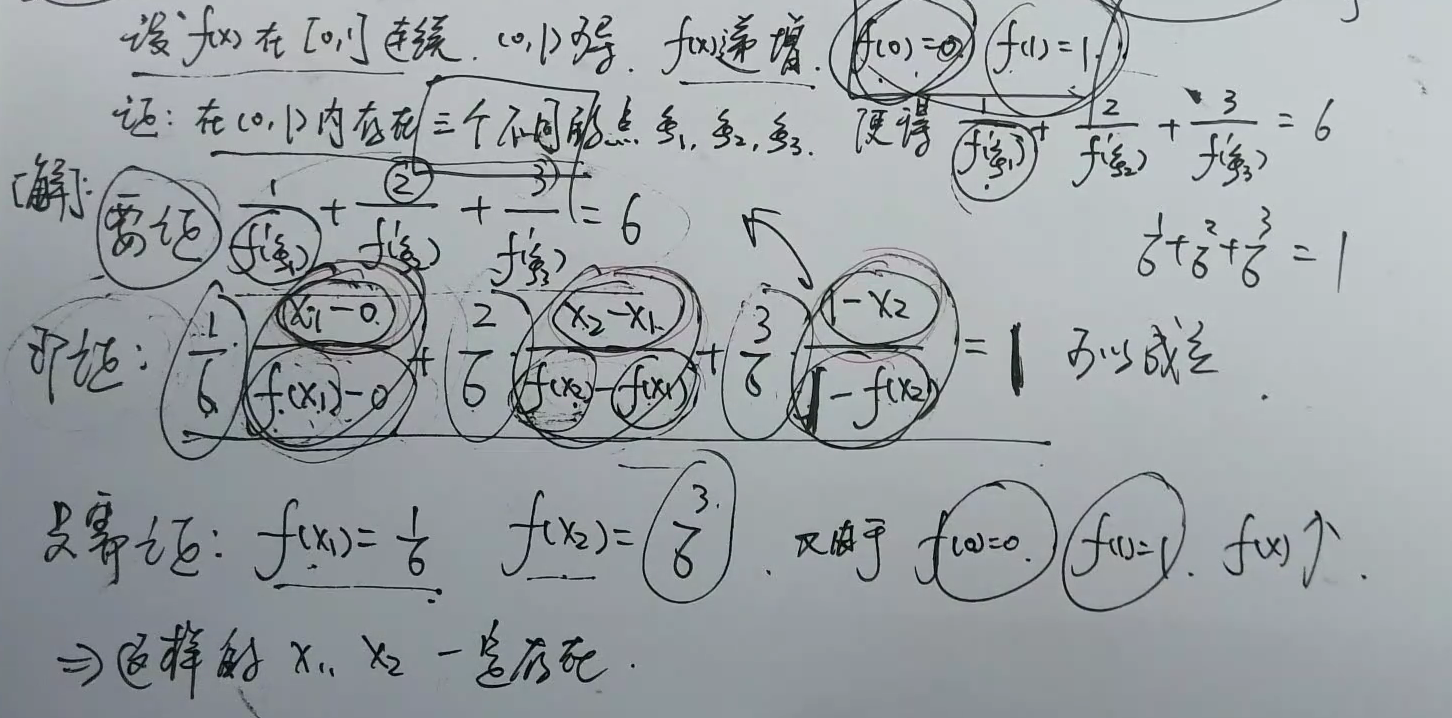 设 f(x) 在 [0,1] 连续. (0,1) 可导. f(x)递增. f(0)=0 f(1)=1.
证: 在(0,1)内存在三个不同的点 ξ₁, ξ₂, ξ₃. 使得 1/f'(ξ₁) + 2/f'(ξ₂) + 3/f'(ξ₃) = 6
[解]: 要证 1/f'(ξ₁) + 2/f'(ξ₂) + 3/f'(ξ₃) = 6
1/6 + 2/6 + 3/6 = 1
即证: 1/6 · (x₁-0)/(f(x₁)-0) + 2/6 · (x₂-x₁)/(f(x₂)-f(x₁)) + 3/6 · (1-x₂)/(1-f(x₂)) = 1 可以成立.
只需证: f(x₁)=1/6 f(x₂)=3/6. 又由于 f(0)=0. f(1)=1. f(x)↑.
⇒这样的 x₁, x₂ 一定存在.